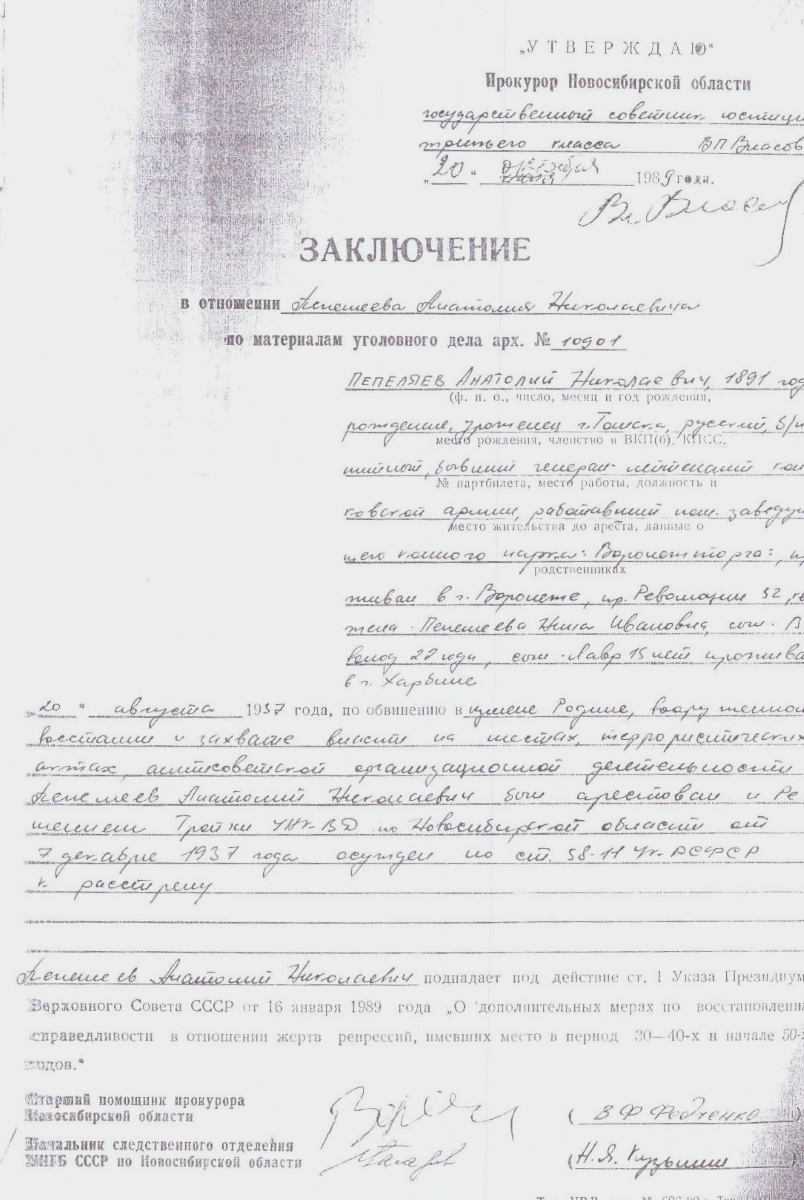 „УТВЕРЖДАЮ“
Прокурор Новосибирской области
государственный советник юстици
третьего класса ВП Власов
„20“ октября 1989 года.
ЗАКЛЮЧЕНИЕ
в отношении Пепеляева Анатолия Николаевича
по материалам уголовного дела арх. № 10901
ПЕПЕЛЯЕВ Анатолий Николаевич, 1891 год
(ф. и. о., число, месяц и год рождения,
рождения, уроженец г. Томска, русский, б/п
место рождения, членство в ВКП(б), КПСС,
тийный, бывший генерал-лейтенант кол
№ партбилета, место работы, должность и
ковской армии, работавший пом. заведую
место жительства до ареста, данные о
щего конного парка: Воронежторга:, пр
родственниках
живал в г. Воронеже, пр. Революции 32,
жена - Пепеляева Нина Ивановна, сын - В
волод 22 года, сын - Лавр 15 лет прожива
в г. Харбине
„20“ августа 1937 года, по обвинению в измене Родине, вооруженном
восстании и захвате власти на местах, террористических
актах, антисоветской организационной деятельности
Пепеляев Анатолий Николаевич был арестован и Ре
шением Тройки УНКВД по Новосибирской области от
7 декабря 1937 года осужден по ст. 58-11 УК РСФСР
к расстрелу
Пепеляев Анатолий Николаевич подпадает под действие ст. 1 Указа Президиум
Верховного Совета СССР от 16 января 1989 года „О дополнительных мерах по восстановлени
справедливости в отношении жертв репрессий, имевших место в период 30—40-х и начале 50-х
годов.“
Старший помощник прокурора
Новосибирской области (В Ф Федченко)
Начальник следственного отделения
УКГБ СССР по Новосибирской области (Н.Я. Кузьмин)